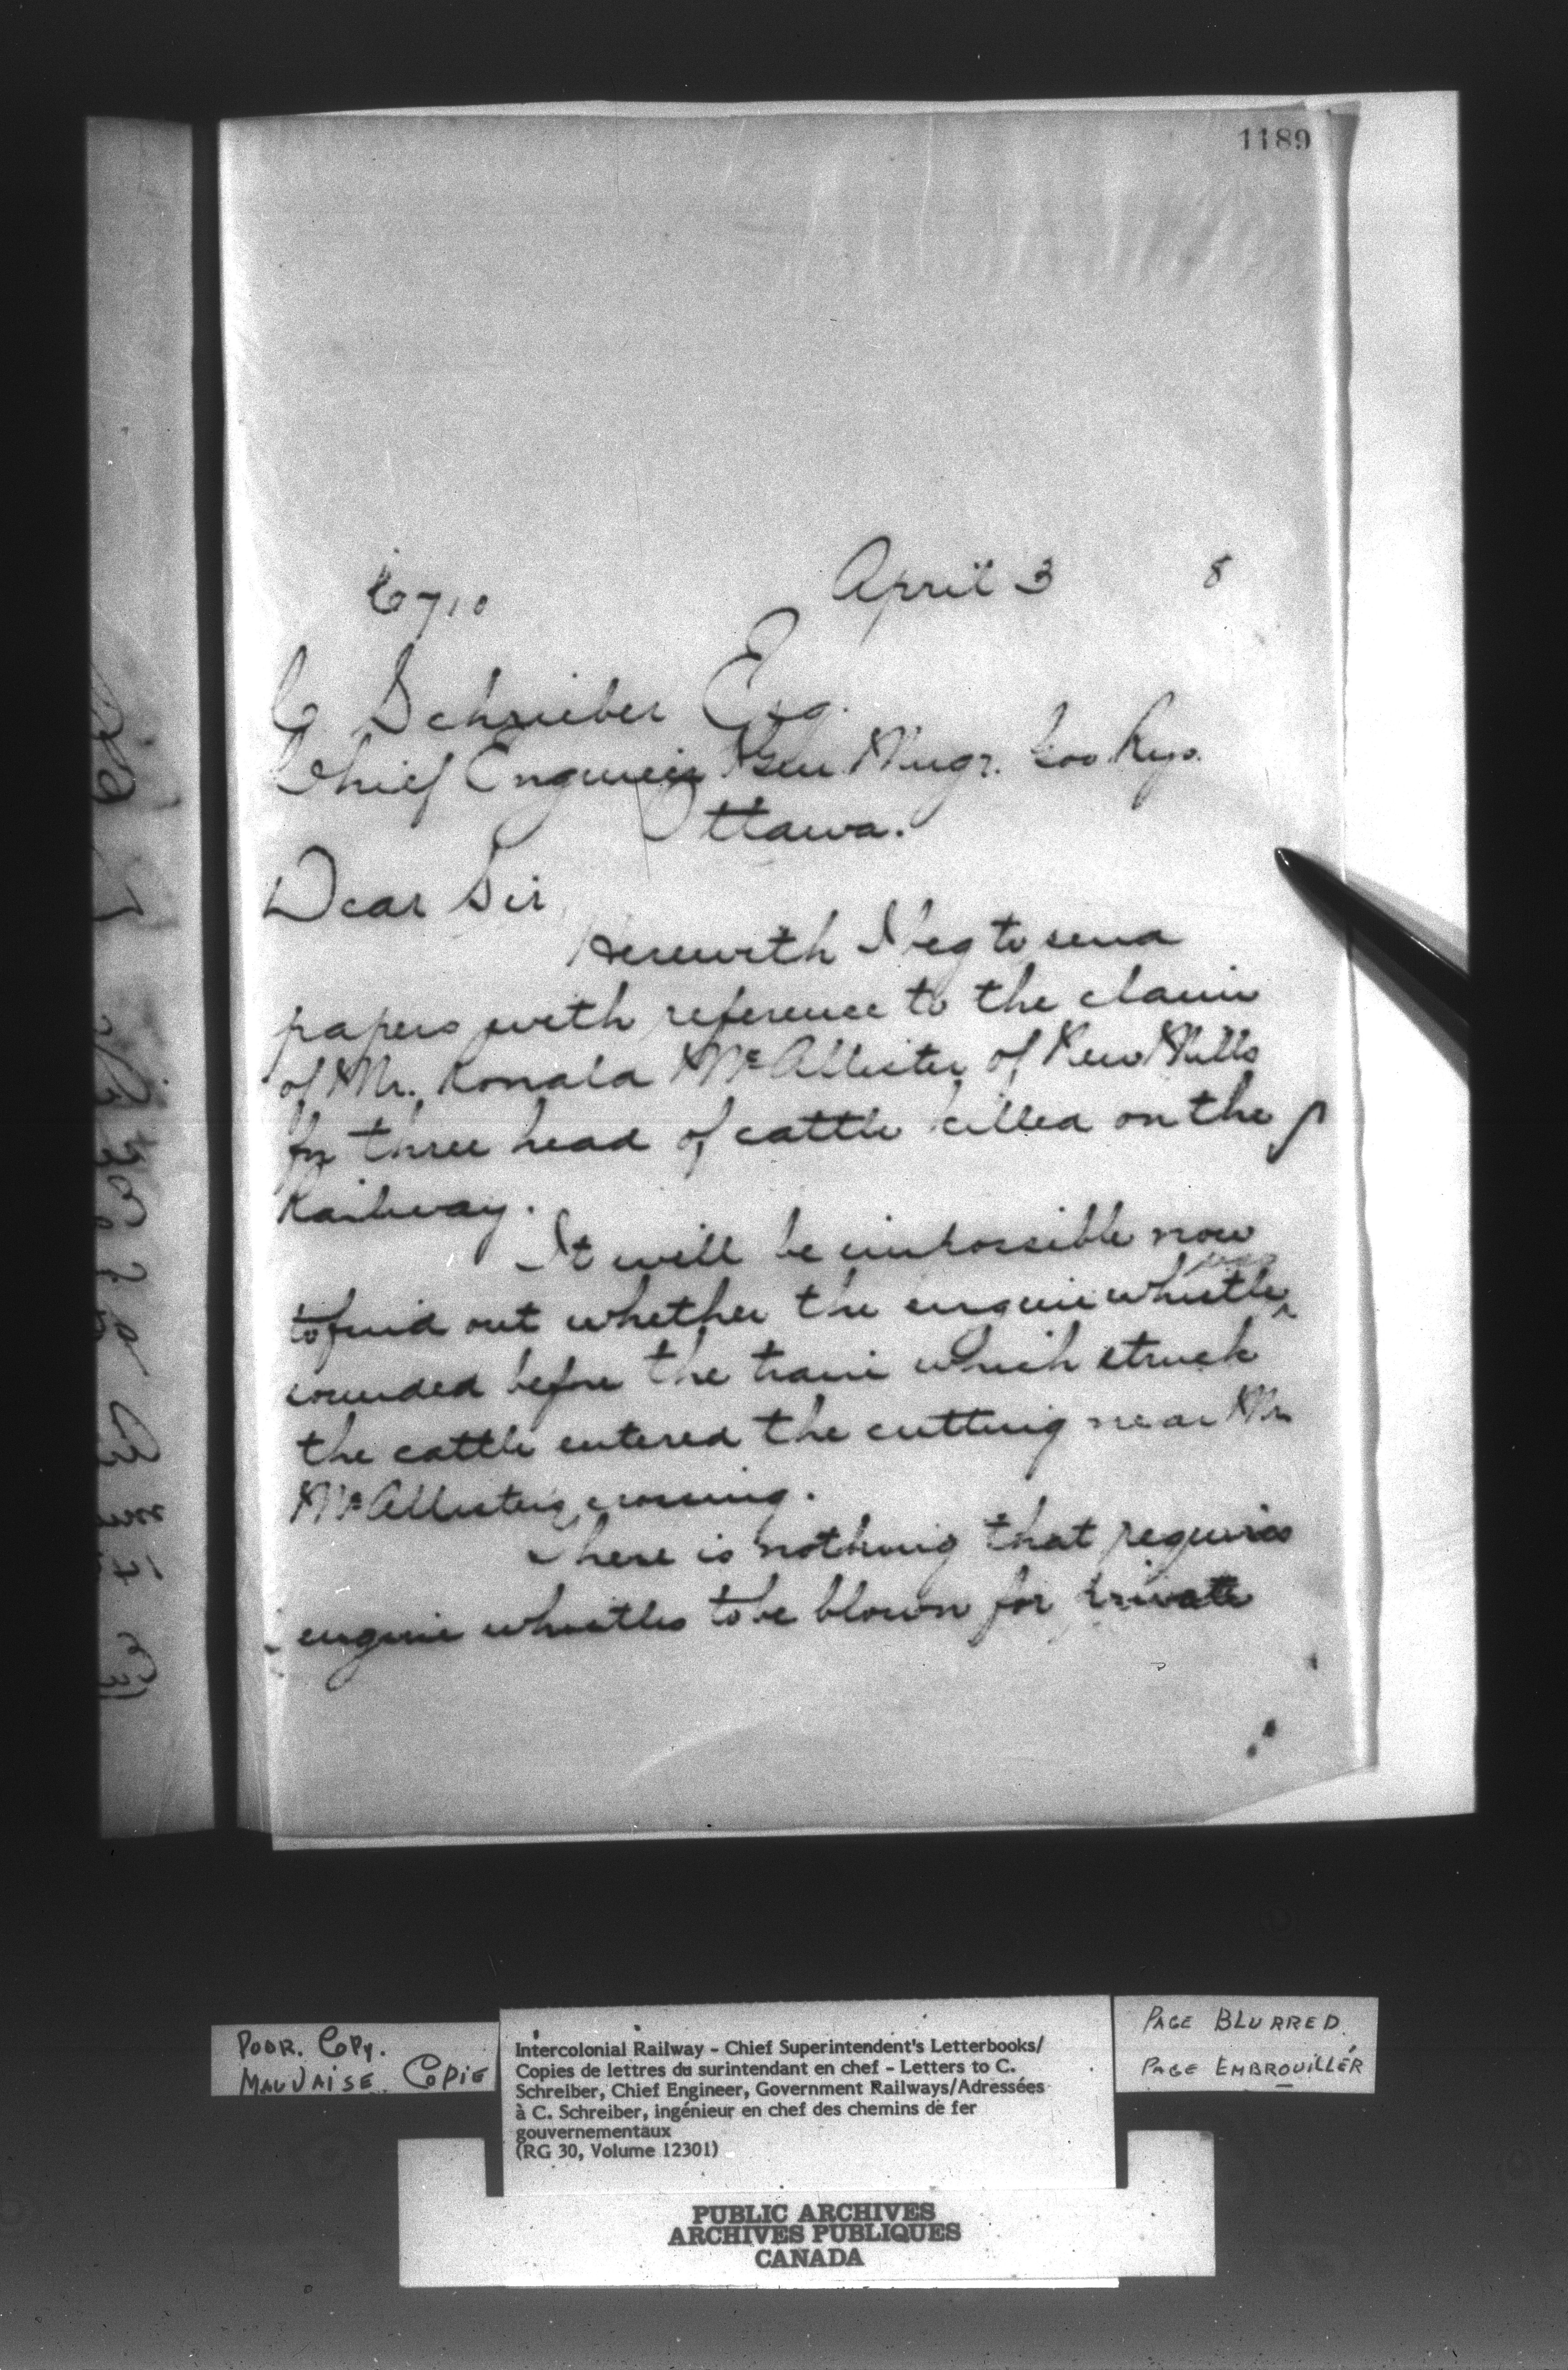 1189
6710 April 3 8
C Schrieber Esq.
Chief Engineer & Gen Mngr. Gov Rys.
Ottawa.
Dear Sir,
Herewith I beg to send
papers with reference to the claim
of Mr. Ronald McAllister of New Mills
for three head of cattle killed on the
Railway.
It will be impossible now
to find out whether the engine whistle was
sounded before the train which struck
the cattle entered the cutting near Mr
McAllisters crossing.
There is nothing that requires
engine whistles to be blown for private
POOR. COPY.
MAUVAISE COPIE
Intercolonial Railway - Chief Superintendent's Letterbooks/
Copies de lettres du surintendant en chef - Letters to C.
Schreiber, Chief Engineer, Government Railways/Adressées
à C. Schreiber, ingénieur en chef des chemins de fer
gouvernementaux
(RG 30, Volume 12301)
PAGE BLURRED.
PAGE EMBROUILLÉR
PUBLIC ARCHIVES
ARCHIVES PUBLIQUES
CANADA